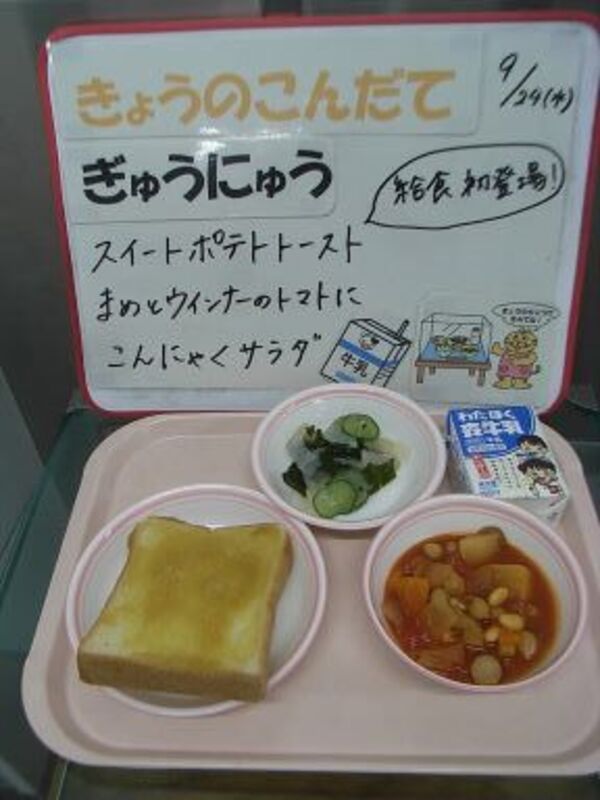 きょうのこんだて
9/24(水)
ぎゅうにゅう
給食初登場!
スイートポテトトースト
まめとウインナーのトマトに
こんにゃくサラダ
牛乳
わたぼく
森牛乳